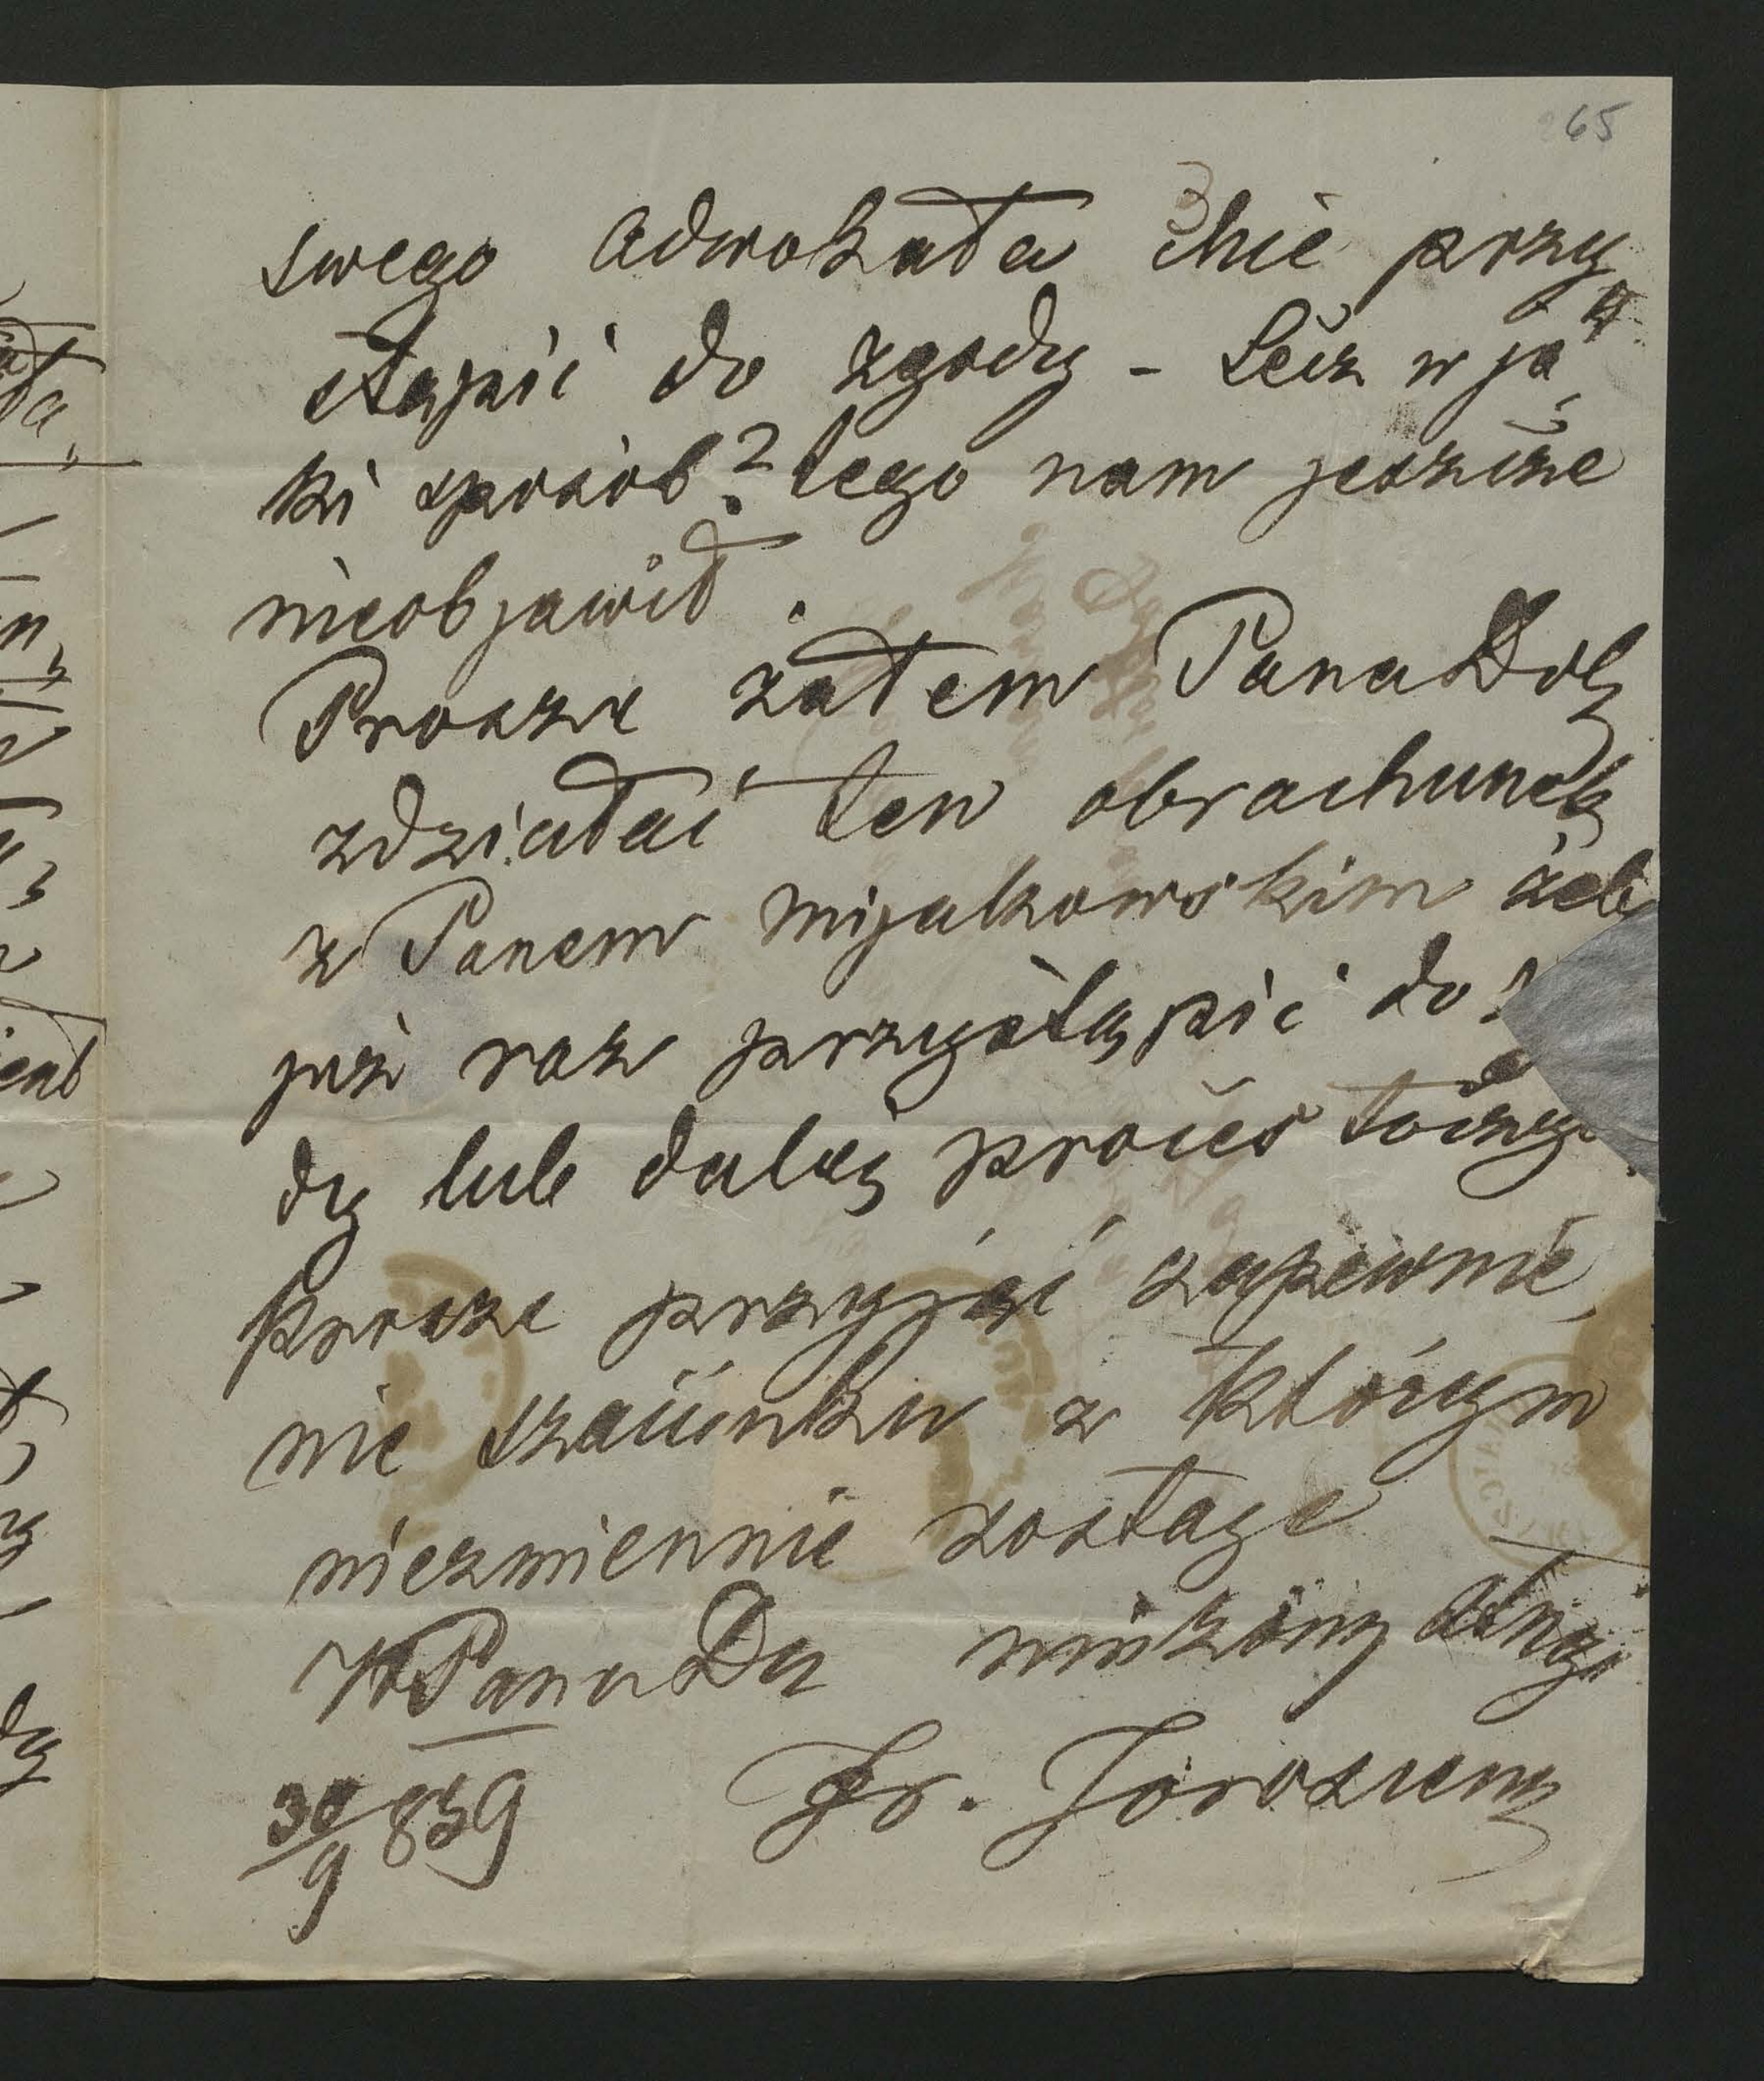 65
swego Adwokata chce przy
stąpić do zgody - Lecz w ja
ki sposób? tego nam jeszcze
nieobjawił.
Proszę zatem Pana Dob
zdziałać ten obrachunek
z Panem Mijakowskim żeb
już raz przystąpić do
dy lub daléj proces toczy
Proszę przyjąć zapewnie,
nie szacunku z którym
niezmiennie zostaję
WPana Da sługa
30/9 859 Fr.